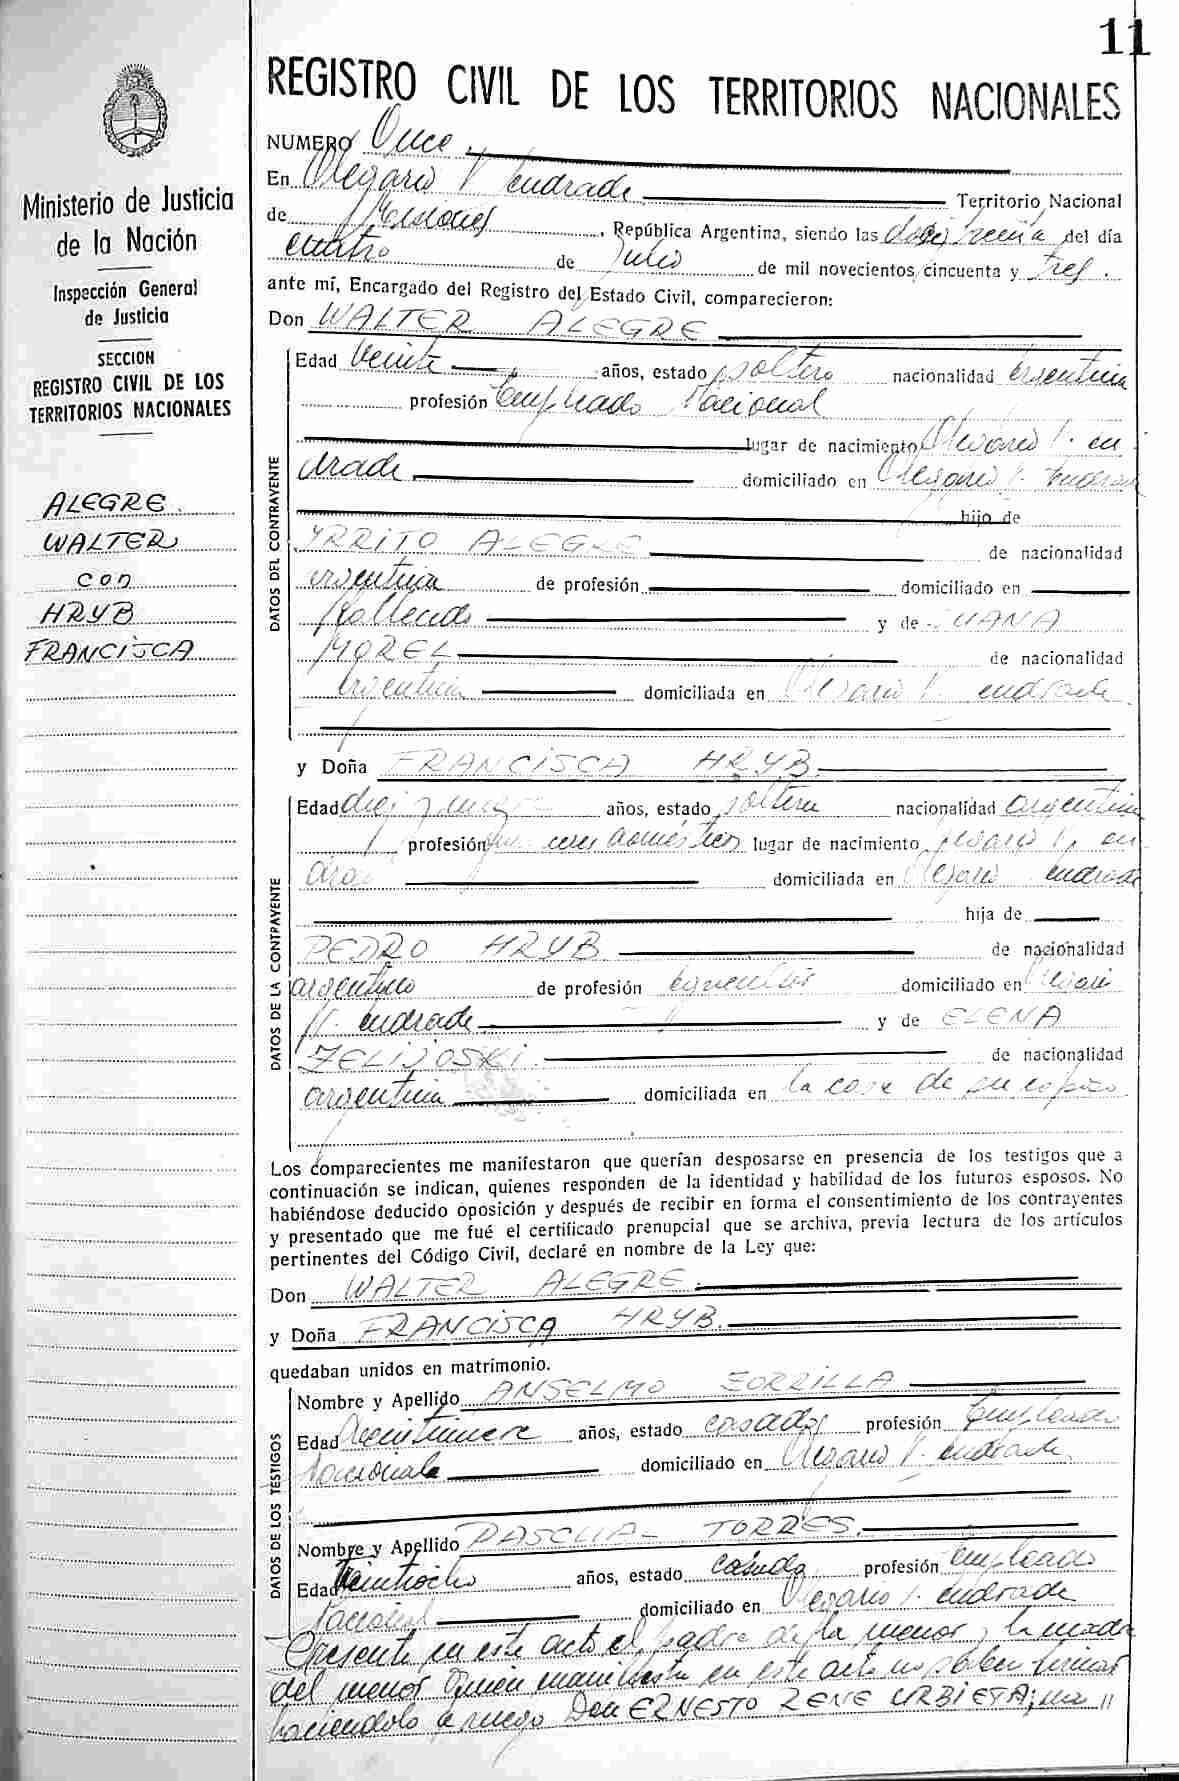 11
REGISTRO CIVIL DE LOS TERRITORIOS NACIONALES
Ministerio de Justicia
de la Nación
Inspección General
de Justicia
SECCION
REGISTRO CIVIL DE LOS
TERRITORIOS NACIONALES
ALEGRE
WALTER
con
HRYB
FRANCISCA
NUMERO Once
En Olegario V. Andrade Territorio Nacional
de Misiones, República Argentina, siendo las doce treinta del día
cuatro de Julio de mil novecientos cincuenta y tres.
ante mí, Encargado del Registro del Estado Civil, comparecieron:
Don WALTER ALEGRE
DATOS DEL CONTRAYENTE
Edad veinte años, estado soltero nacionalidad argentina
profesión Empleado Nacional
lugar de nacimiento Olegario V. An
drade domiciliado en Olegario V. Andrade
hijo de
YRRITO ALEGRE de nacionalidad
argentina de profesión domiciliado en
fallecido y de JUANA
MOREL de nacionalidad
argentina domiciliada en Olegario V. Andrade
y Doña FRANCISCA HRYB
DATOS DE LA CONTRAYENTE
Edad diez y años, estado soltera nacionalidad argentina
profesión domésticos lugar de nacimiento Olegario V. An
drade domiciliada en Olegario Andrade
hija de
PEDRO HRYB de nacionalidad
argentino de profesión agricultor domiciliado en Olegario
V. Andrade y de ELENA
ZELIJOSKI de nacionalidad
argentina domiciliada en la casa de su esposo
Los comparecientes me manifestaron que querían desposarse en presencia de los testigos que a
continuación se indican, quienes responden de la identidad y habilidad de los futuros esposos. No
habiéndose deducido oposición y después de recibir en forma el consentimiento de los contrayentes
y presentado que me fué el certificado prenupcial que se archiva, previa lectura de los artículos
pertinentes del Código Civil, declaré en nombre de la Ley que:
Don WALTER ALEGRE
y Doña FRANCISCA HRYB.
quedaban unidos en matrimonio.
DATOS DE LOS TESTIGOS
Nombre y Apellido ANSELMO ZORRILLA
Edad veintinueve años, estado casado profesión Empleado
Nacional domiciliado en Olegario V. Andrade
Nombre y Apellido PASCUAL TORRES.
Edad Veintiocho años, estado casado profesión Empleado
Nacional domiciliado en Olegario V. Andrade
Presente en este acto el padre de la menor y la madre
del menor quien manifiesta en este acto no saber firmar
haciendolo a ruego Don ERNESTO RENE URBIETA; una //